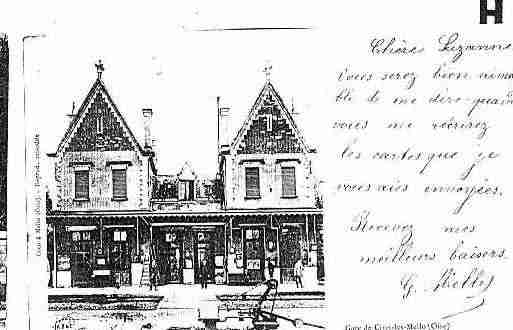 H
Chère Suzanne
Vous serez bien aima
ble de me dire quand
vous me écrirez
les cartes que je
vous aies envoyées.
Recevez mes
meilleurs baisers.
G.
Gare de Cires-les-Mello (Oise)